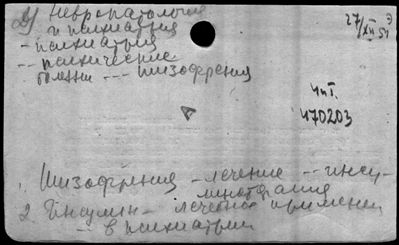 2) Невропатология
и психиатрия
- психиатрия
-- психические
болезни --- шизофрения
27/XII 51
Э
чит.
470203
1. Шизофрения - лечение -- инсу-
линотерапия
2. Инсулин - лечебное применение
-- в психиатрии